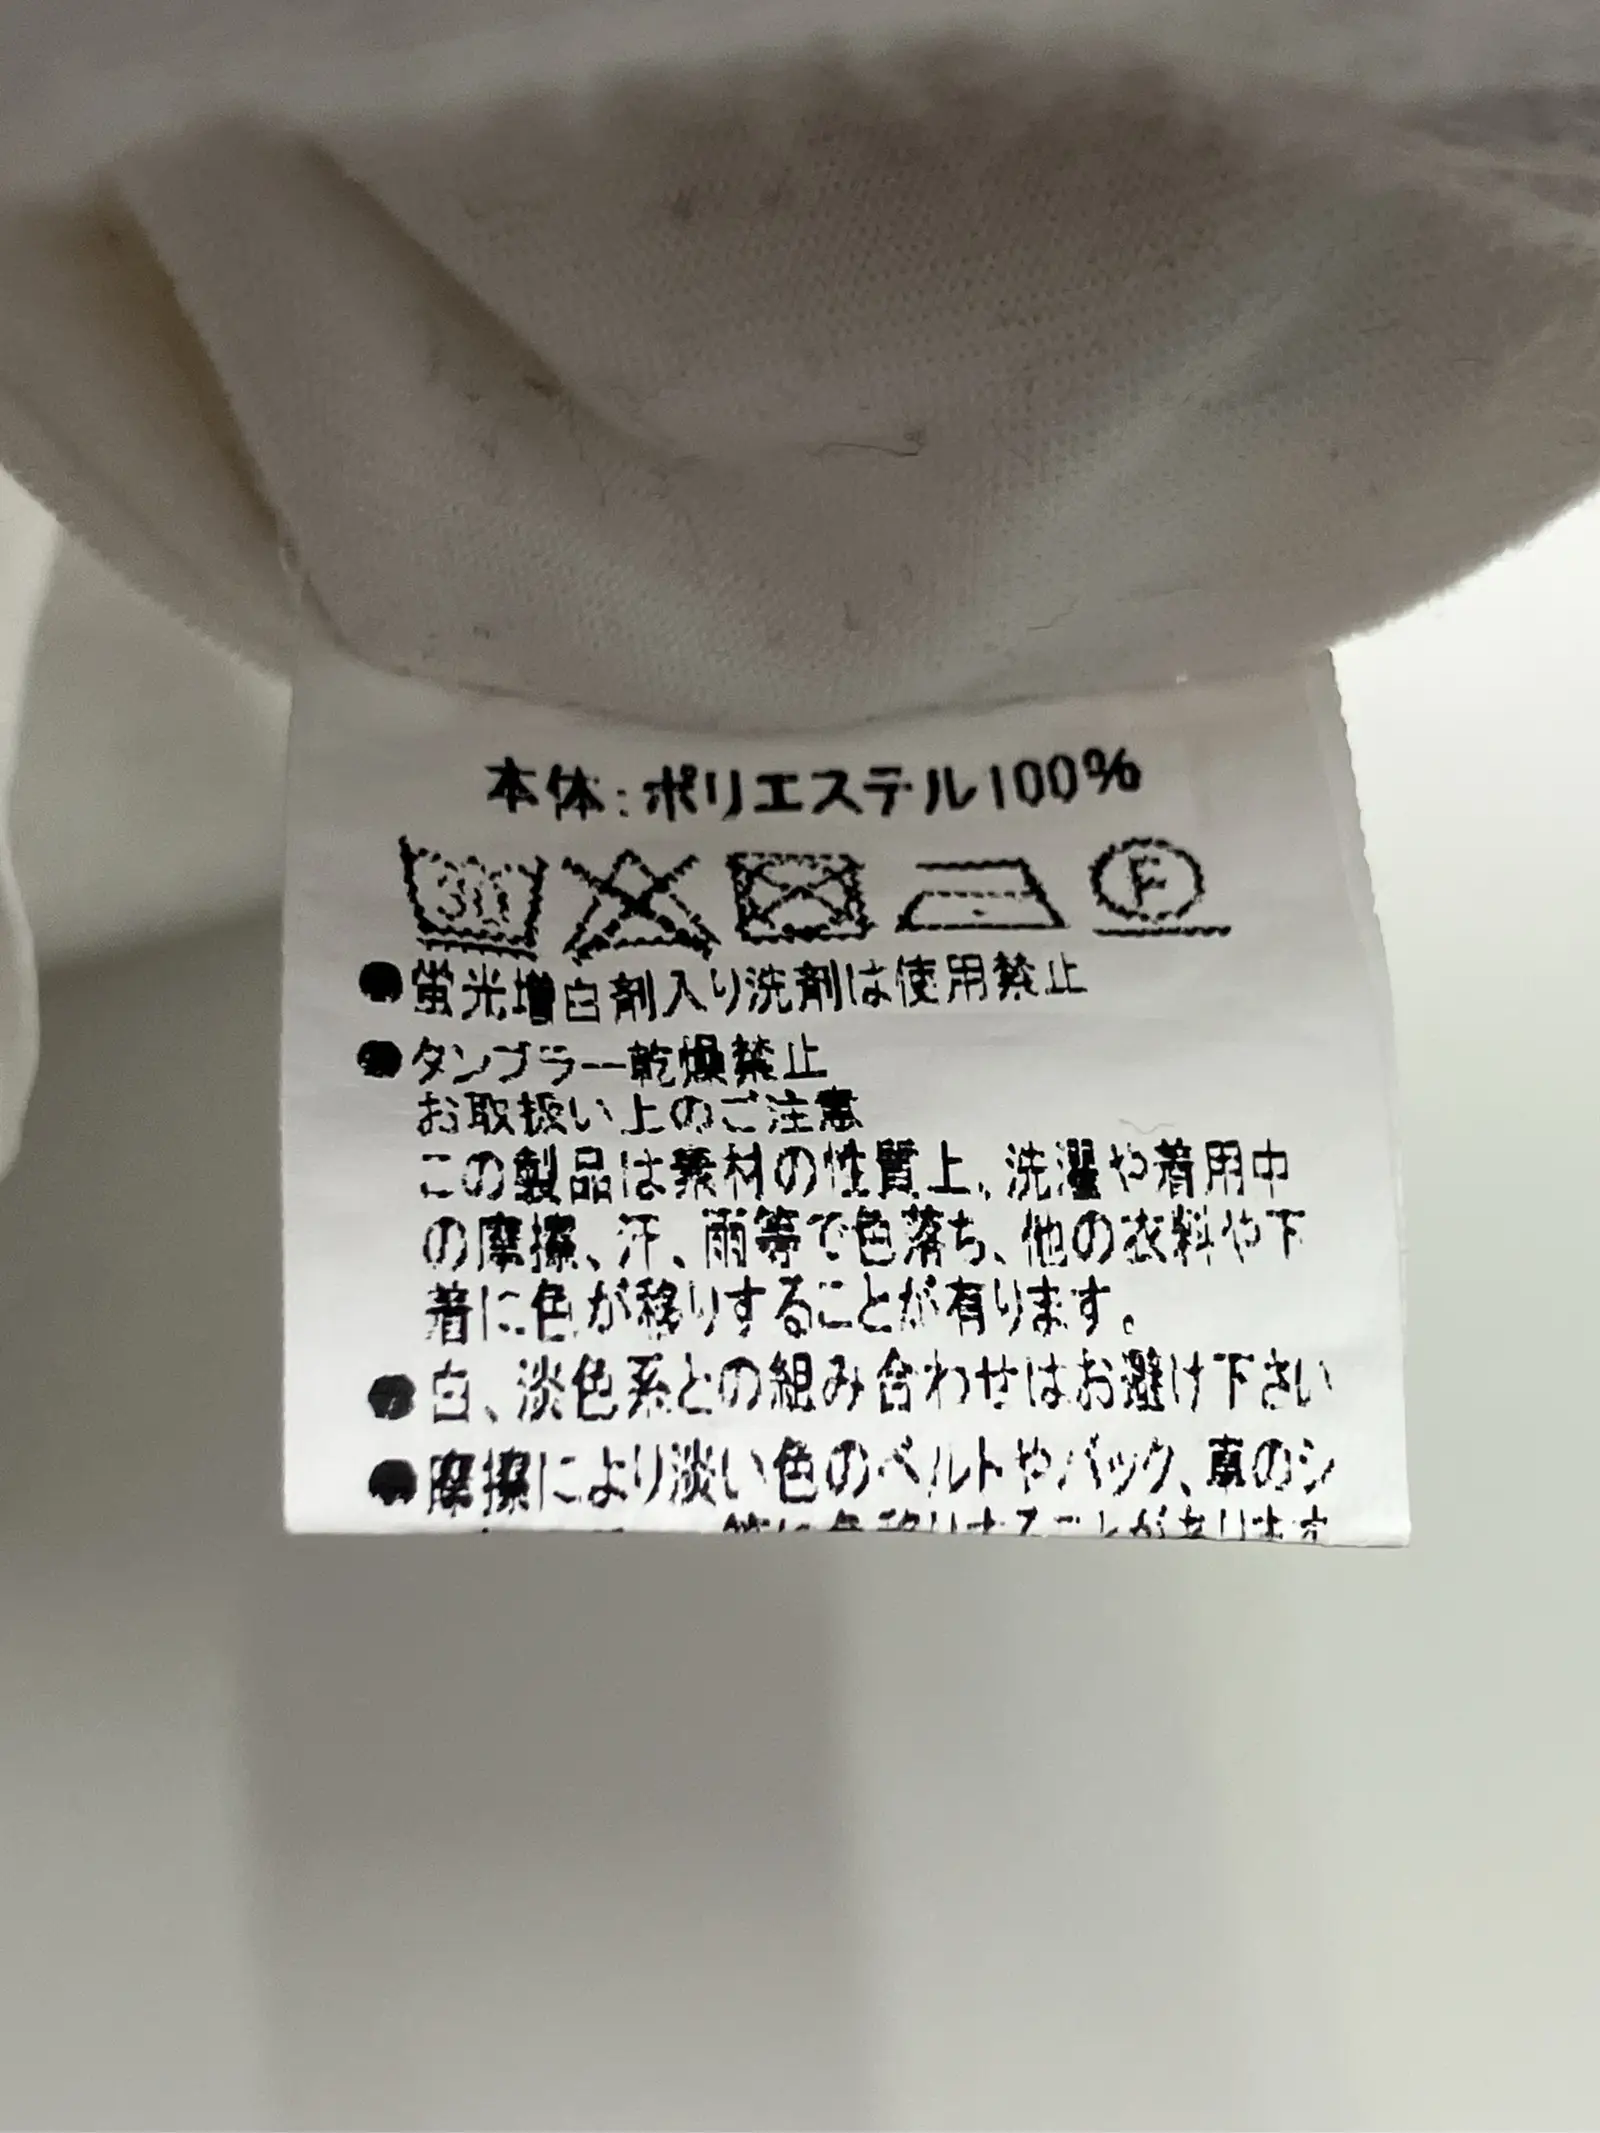 本体:ポリエステル100%
30 F
●蛍光増白剤入り洗剤は使用禁止
●タンブラー乾燥禁止
お取扱い上のご注意
この製品は素材の性質上、洗濯や着用中
の摩擦、汗、雨等で色落ち、他の衣料や下
着に色が移りすることが有ります。
●白、淡色系との組み合わせはお避け下さい
●摩擦により淡い色のベルトやバック、車のシ
等に色移りすることがあります